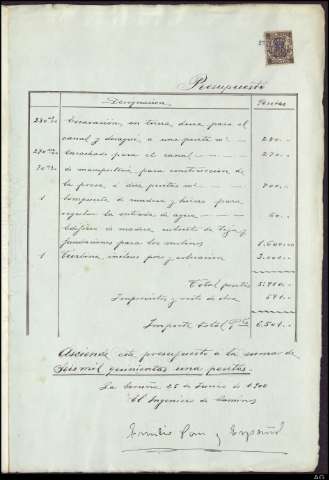 Presupuesto
Designación. Pesetas
280 m3 Excavación, en tierra dura para el
canal y desagüe, a una peseta m3 280.-
270 m2 Encachado para el canal 270.-
70 m3 de mampostería para construcción de
la presa, a diez pesetas m3 700.-
1 Compuerta de madera y hierro para
regular la entrada de agua 60.-
Edificio de madera cubierto de teja y
fundaciones para los motores 1.600.-
1 Turbina, inclusos y colocación 3.000.-
Total pesetas 5.910.-
Imprevistos y de obra 591.-
Importe total Pts 6.501.-
Asciende este presupuesto a la suma de
Seis mil quinientas una pesetas.
La Coruña 25 de Junio de 1900
El Ingeniero de Caminos
Emilio Pan y Español